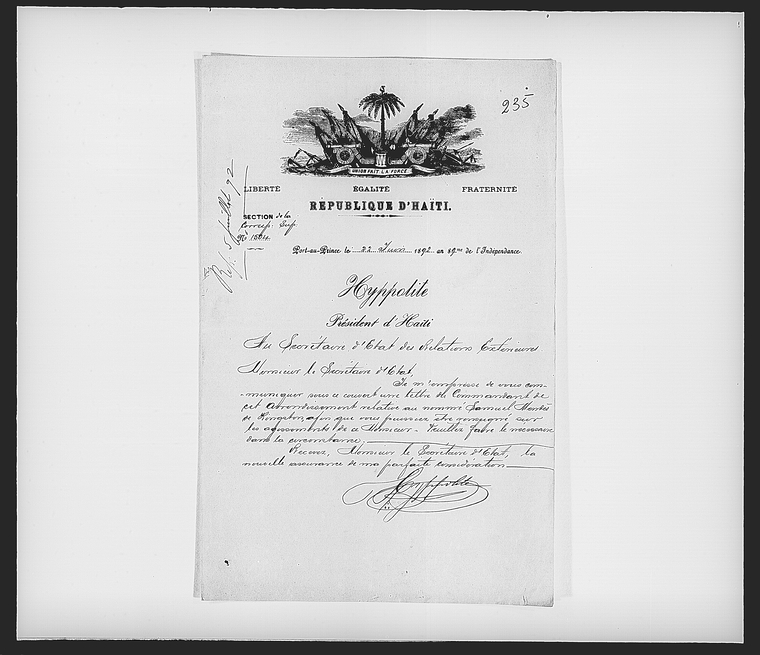 235
UNION FAIT LA FORCE
LIBERTÉ ÉGALITÉ FRATERNITÉ
RÉPUBLIQUE D'HAÏTI.
SECTION de la
Corresp. Sup.
Nº
Rép. 5 juillet 92
Port-au-Prince le 22 Juin 1892 an 89me de l'Indépendance.
Hyppolite
Président d'Haïti
Au Secrétaire d'Etat des Relations Extérieures
Monsieur le Secrétaire d'Etat,
Je m'empresse de vous com-
-muniquer sous ce couvert une lettre du Commandant de
cet arrondissement relative au nommé Samuel
de Kingston, afin que vous puissiez être renseigné sur
les agissements de ce Monsieur - Veuillez faire le nécessaire
dans la circonstance.
Recevez, Monsieur le Secrétaire d'Etat, la
nouvelle assurance de ma parfaite considération
Hyppolite